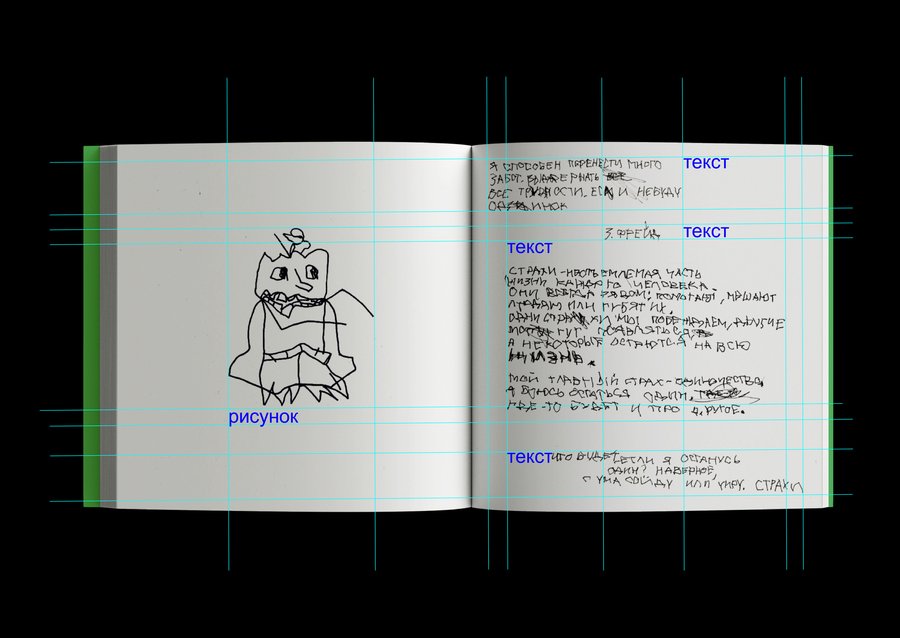 рисунок
Я СПОСОБЕН ПЕРЕНЕСТИ МНОГО
текст
ЗАБОТ. ВЫДЕРЖАТЬ
ВСЕ ТРУДНОСТИ. ЕСЛИ НЕ БУДУ
ОДИНОК
З. ФРЕЙД
текст
текст
СТРАХИ - НЕОТЪЕМЛЕМАЯ ЧАСТЬ
ЖИЗНИ КАЖДОГО ЧЕЛОВЕКА.
ОНИ ВСЕГДА РЯДОМ: ПОМОГАЮТ, МЕШАЮТ
ЛЮДЯМ ИЛИ ГУБЯТ ИХ.
ОДНИ СТРАХИ МЫ ПОБЕЖДАЕМ, ДРУГИЕ
МОГУТ ПОЯВЛЯТЬСЯ,
А НЕКОТОРЫЕ ОСТАЮТСЯ НА ВСЮ
ЖИЗНЬ.
МОЙ ГЛАВНЫЙ СТРАХ - ОДИНОЧЕСТВО,
Я БОЮСЬ ОСТАТЬСЯ ОДИН.
ГДЕ-ТО БУДЕТ И ПРО ДРУГОЕ.
текст
ЧТО БУДЕТ ЕСЛИ Я ОСТАНУСЬ
ОДИН? НАВЕРНОЕ,
С УМА СОЙДУ ИЛИ УМРУ. СТРАХИ